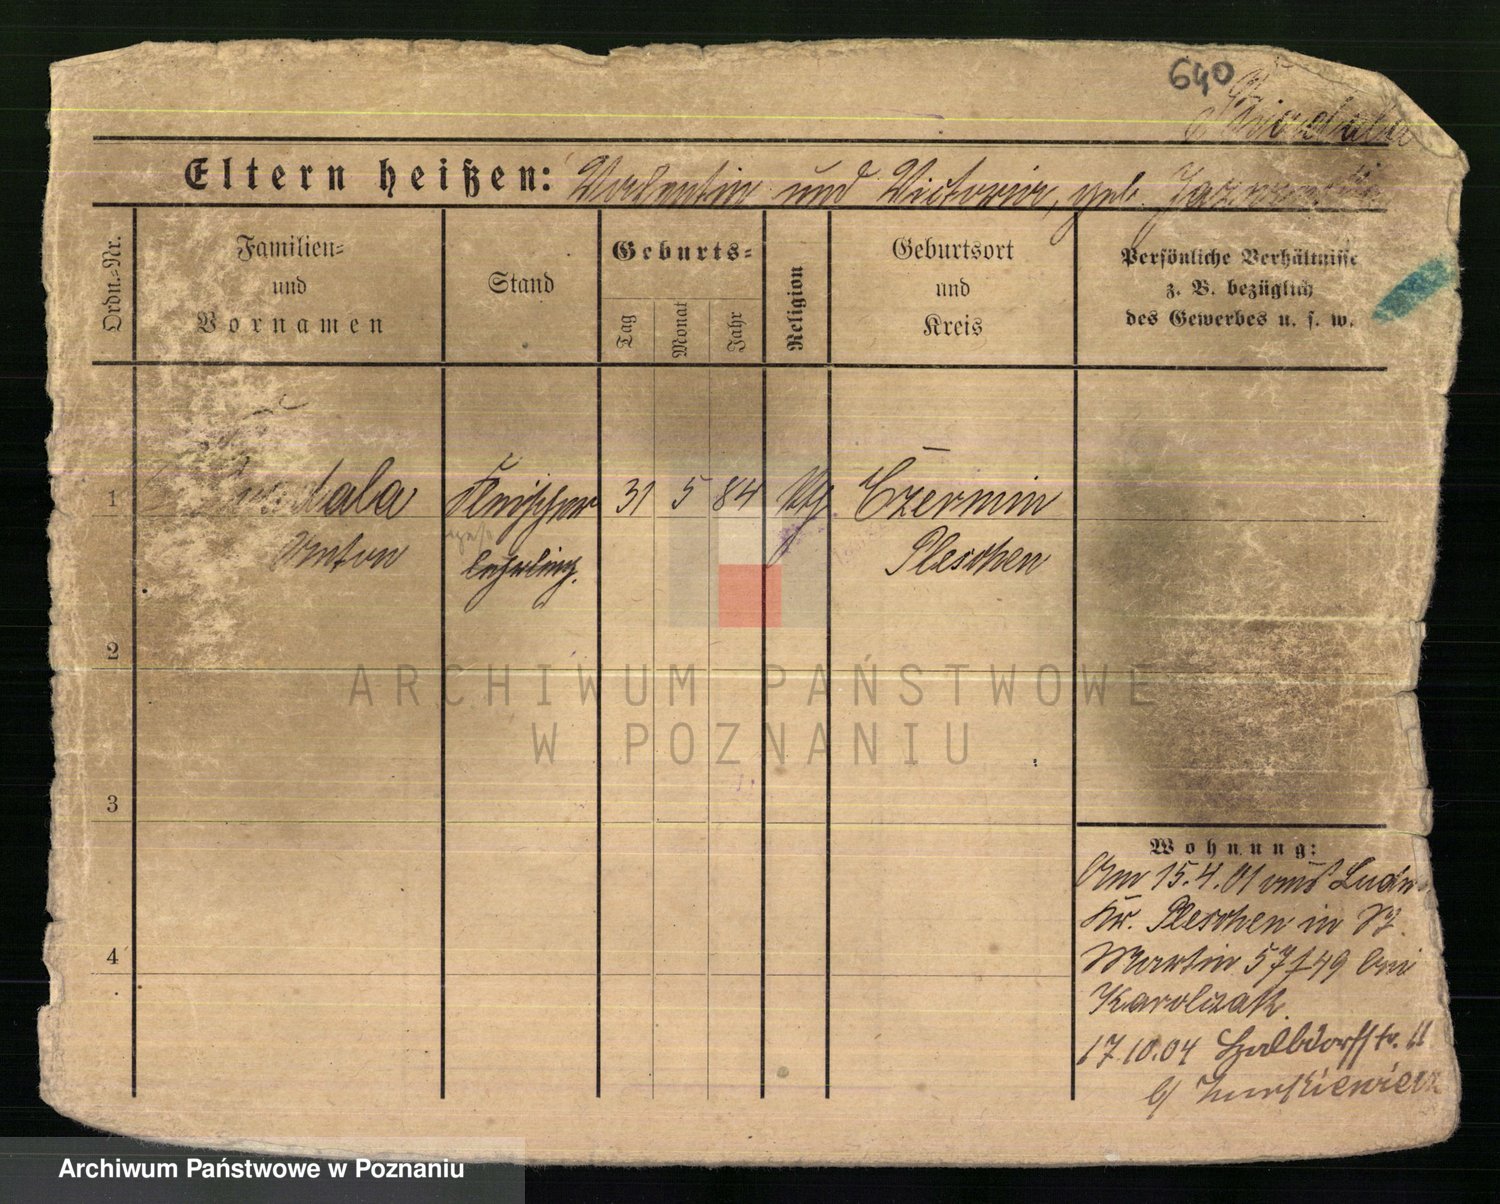 640
Eltern heißen: Valentin und Victoria, geb.
Ordn.-Nr.
Familien- und Vornamen
Stand
Geburts-
Tag
Monat
Jahr
Religion
Geburtsort und Kreis
Persönliche Verhältnisse z. B. bezüglich des Gewerbes u. s. w.
1
Fleischer
31 5 84
Czermin
Anton
lehrling.
Pleschen
2
3
4
Wohnung:
Am 15.4.01 aus
Kr. Pleschen in St.
Martin 57/49 bei
Karolczak.
17.10.04 Halbdorfstr. 11
b/
ARCHIWUM PAŃSTWOWE
W POZNANIU
Archiwum Państwowe w Poznaniu